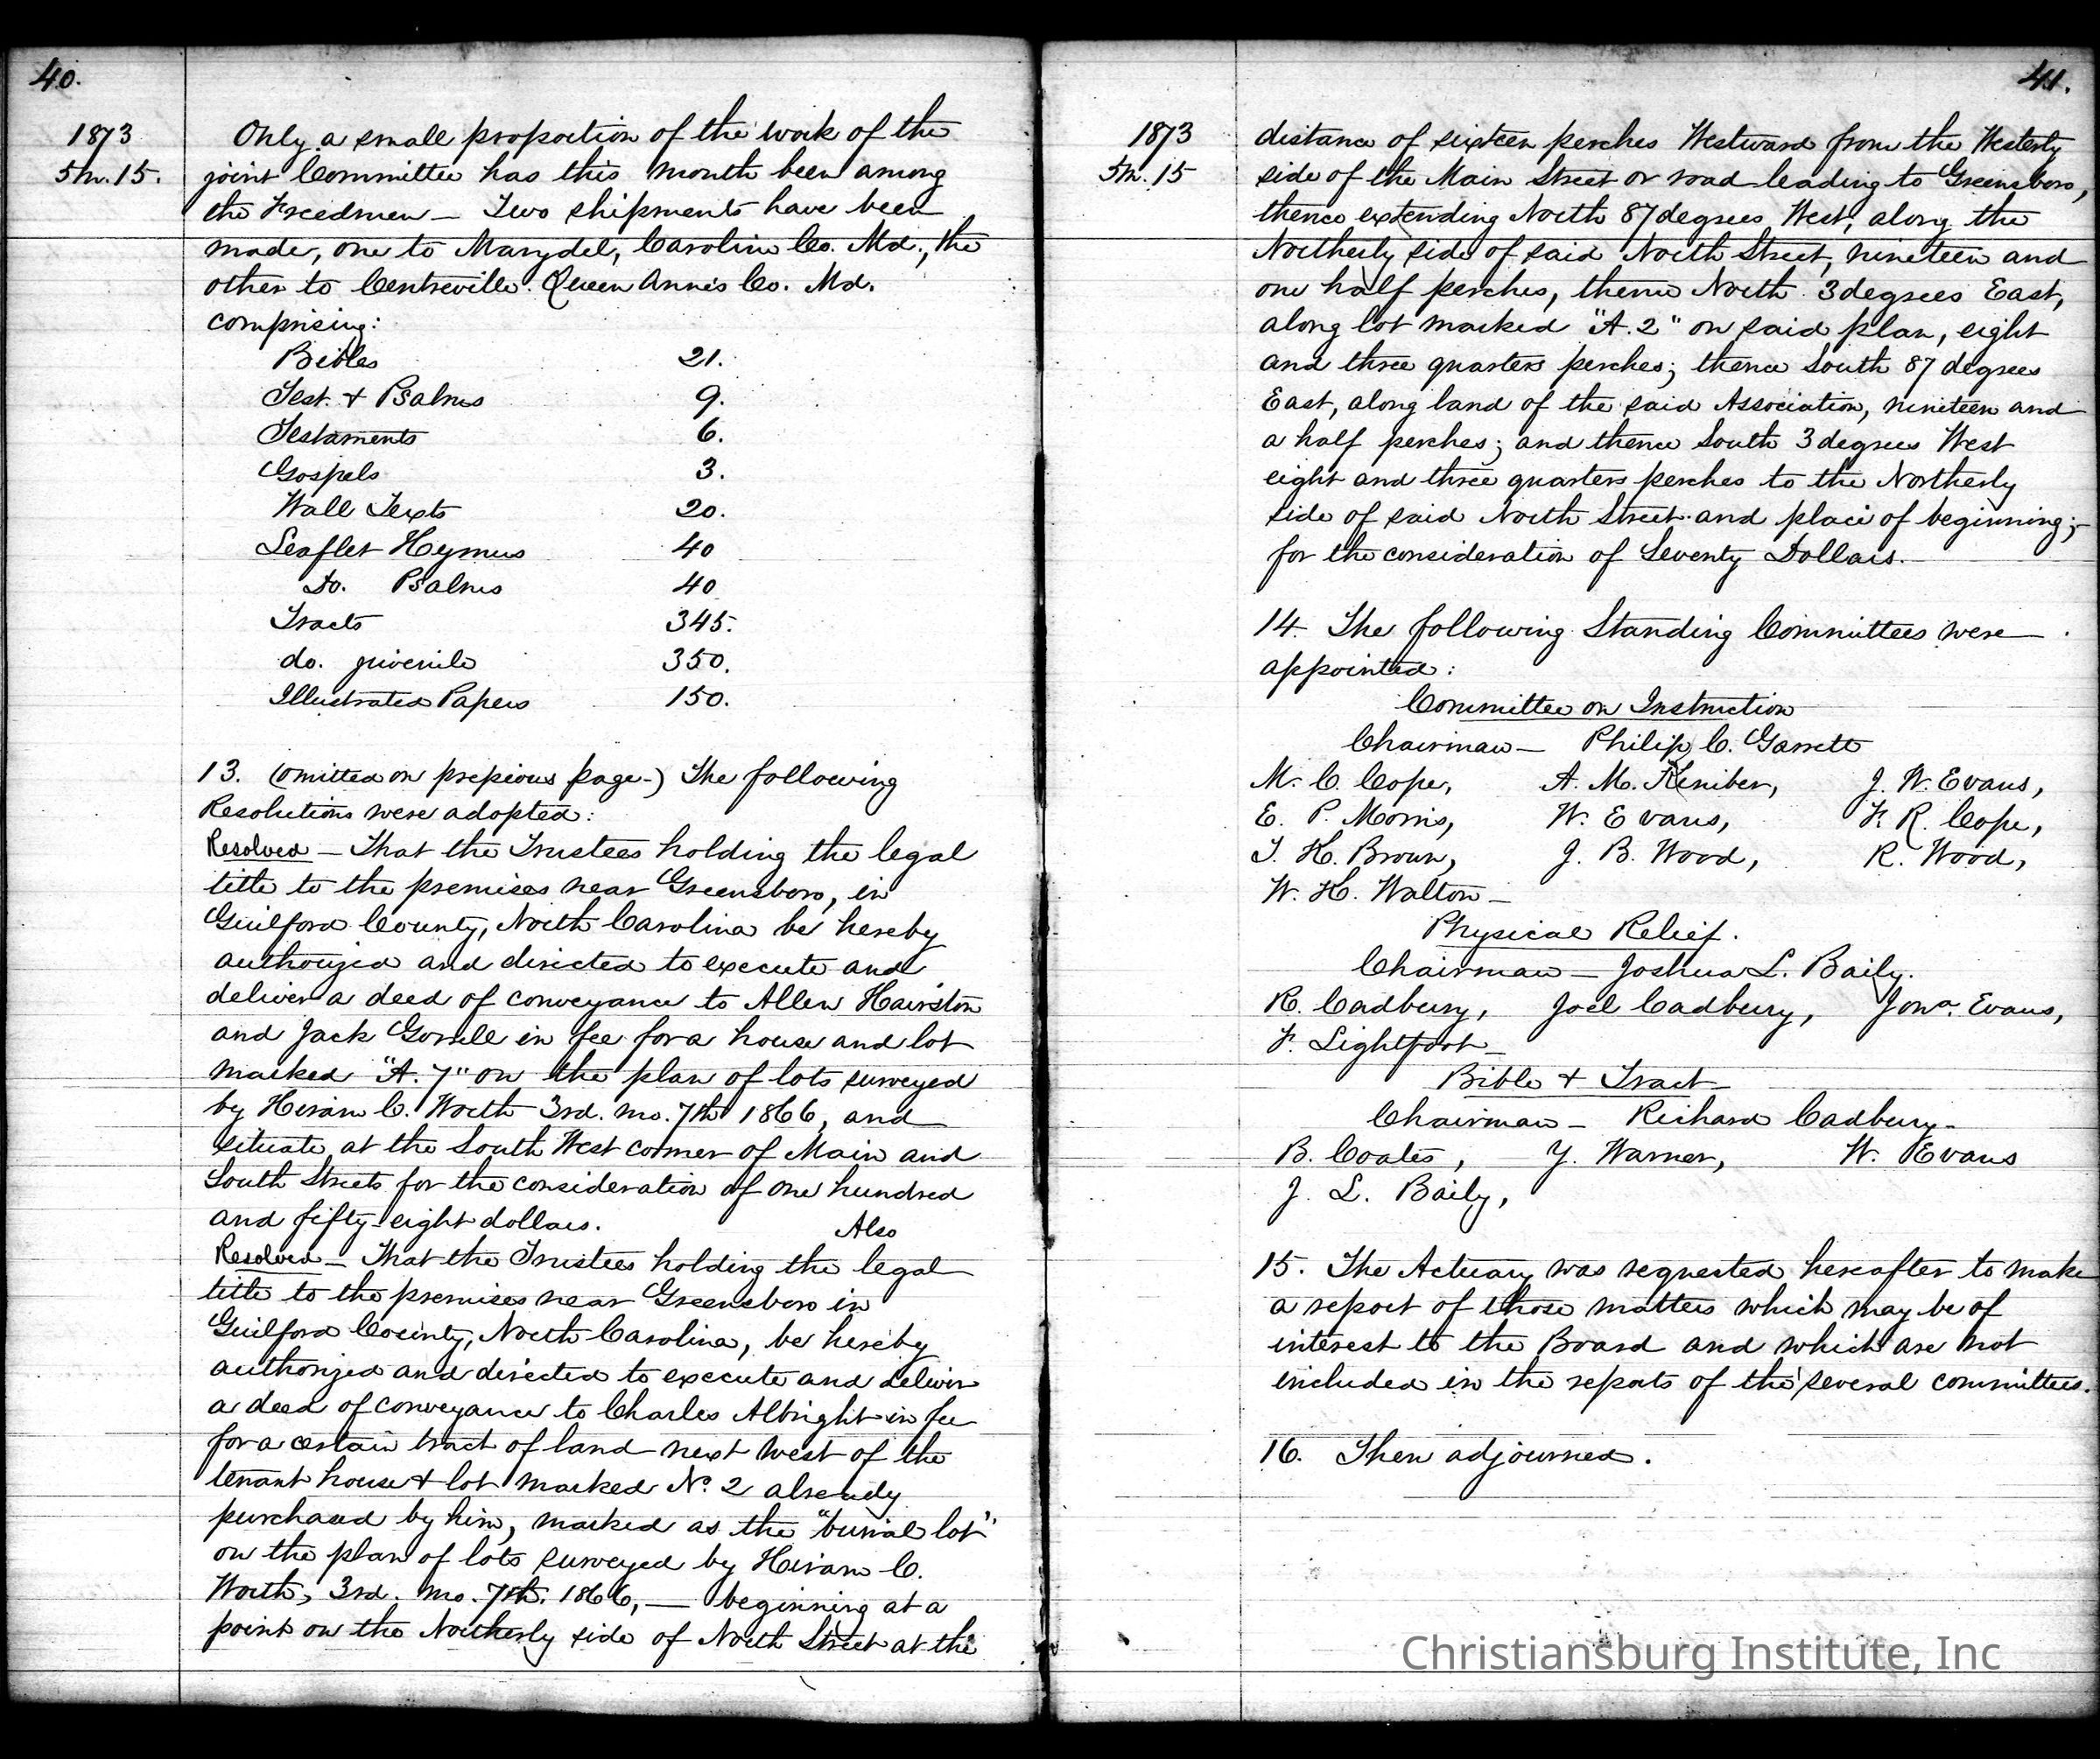 40.
1873
5m.15.
Only a small proportion of the work of the
joint Committee has this month been among
the Freedmen — Two shipments have been
made, one to Marydel, Caroline Co. Md., the
other to Centreville. Queen Anne's Co. Md.
comprising:
Bibles 21.
Test. + Psalms 9.
Testaments 6.
Gospels 3.
Wall Texts 20.
Leaflet Hymns 40
Do. Psalms 40
Tracts 345.
do. juvenile 350.
Illustrated Papers 150.
13. (omitted on prepious page-) The following
Resolutions were adopted:
Resolved — That the Trustees holding the legal
title to the premises near Greensboro, in
Guilford County, North Carolina be hereby
authorized and directed to execute and
deliver a deed of conveyance to Allen Hairston
and Jack Gorrell in fee for a house and lot
marked "A. 7" on the plan of lots surveyed
by Hiram C. Worth 3rd. mo. 7th 1866, and
situate at the South West corner of Main and
South Streets for the consideration of one hundred
and fifty-eight dollars. Also
Resolved — That the Trustees holding the legal
title to the premises near Greensboro in
Guilford County, North Carolina, be hereby
authorized and directed to execute and deliver
a deed of conveyance to Charles Albright in fee
for a certain tract of land next west of the
tenant house + lot marked No. 2 already
purchased by him, marked as the "burial lot"
on the plan of lots surveyed by Hiram C.
Worth, 3rd. mo. 7th. 1866, — beginning at a
point on the Northerly side of North Street at the
41.
1873
5m. 15
distance of sixteen perches Westward from the Westerly
side of the Main Street or road leading to Greensboro,
thence extending North 87 degrees West, along the
Northerly side of said North Street, nineteen and
one half perches, thence North 3 degrees East,
along lot marked "A. 2" on said plan, eight
and three quarters perches; thence South 87 degrees
East, along land of the said Association, nineteen and
a half perches; and thence South 3 degrees West
eight and three quarters perches to the Northerly
side of said North Street and place of beginning;-
for the consideration of Seventy Dollars.
14. The following Standing Committees were
appointed:
Committee on Instruction
Chairman — Philip C. Garrett
M. C. Cope, A. M. Kimber, J. W. Evans,
E. P. Morris, W. Evans, F. R. Cope,
T. H. Brown, J. B. Wood, R. Wood,
W. H. Walton —
Physical Relief.
Chairman — Joshua L. Baily.
R. Cadbury, Joel Cadbury, Jona. Evans,
F. Lightfoot —
Bible + Tract
Chairman — Richard Cadbury —
B. Coates, Y. Warner, W. Evans
J. L. Baily,
15. The Actuary was requested hereafter to make
a report of those matters which may be of
interest to the Board and which are not
included in the reports of the several committees.
16. Then adjourned.
Christiansburg Institute, Inc